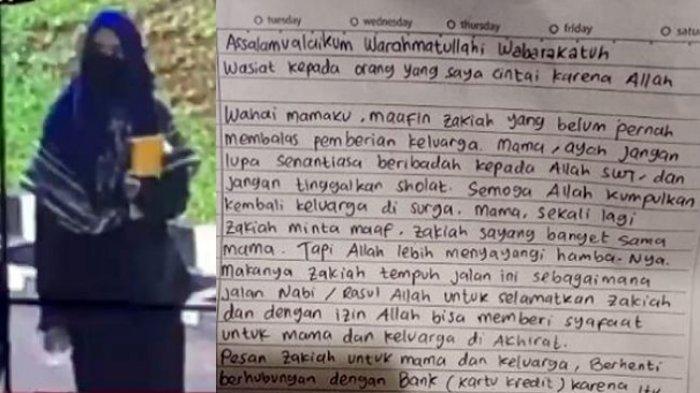 tuesday wednesday thursday friday satu
Assalamualaikum Warahmatullahi Wabarakatuh
Wasiat kepada orang yang saya cintai karena Allah
Wahai mamaku, maafin zakiah yang belum pernah
membalas pemberian keluarga. Mama, ayah jangan
lupa senantiasa beribadah kepada Allah swt, dan
jangan tinggalkan sholat. Semoga Allah kumpulkan
kembali keluarga di surga. Mama, sekali lagi
zakiah minta maaf. zakiah sayang banget sama
mama. Tapi Allah lebih menyayangi hamba-Nya.
Makanya zakiah tempuh jalan ini sebagaimana
jalan Nabi / Rasul Allah untuk selamatkan zakiah
dan dengan izin Allah bisa memberi syafaat
untuk mama dan keluarga di Akhirat.
Pesan zakiah untuk mama dan keluarga, Berhenti
berhubungan dengan Bank (kartu kredit) karena itu